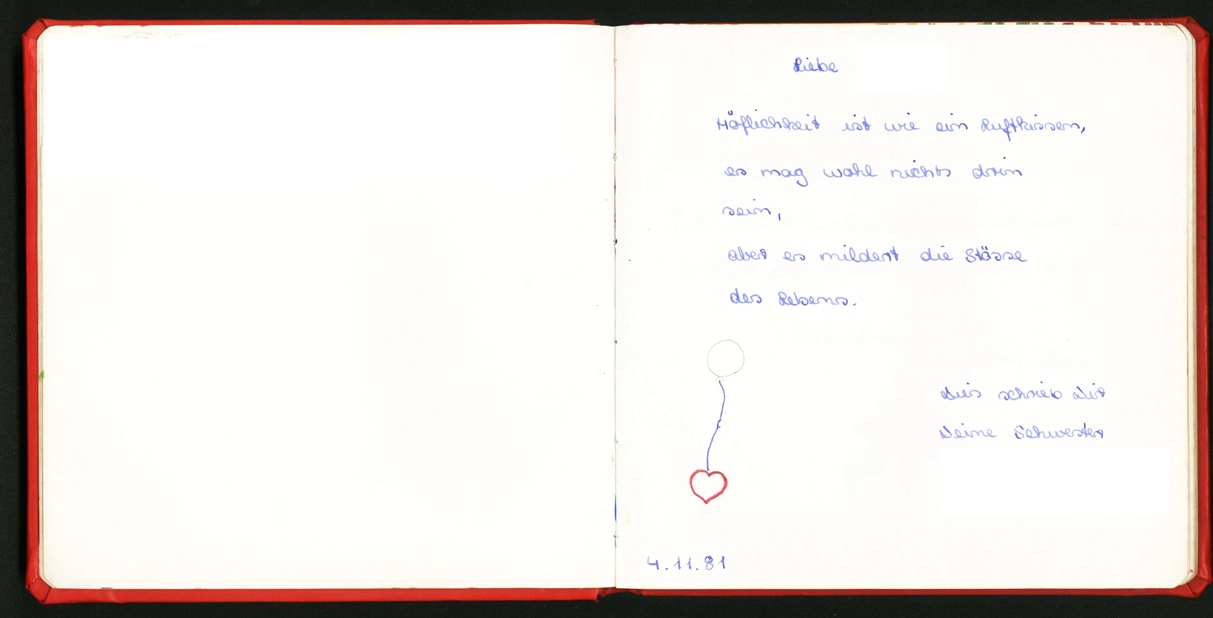 Liebe
Höflichkeit ist wie ein Luftkissen,
es mag wohl nichts drin
sein,
aber es mildert die Stösse
des Lebens.
Dies schrieb Dir
Deine Schwester
4.11.81